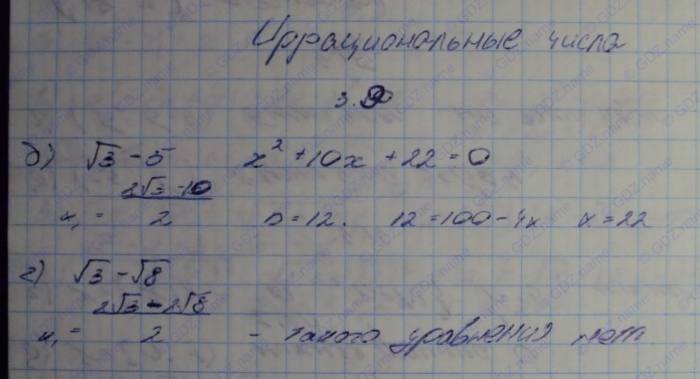 Иррациональные числа
3.9
б) √3 - 5 x² + 10x + 22 = 0
x₁ = (2√3 - 10)/2 D = 12. 12 = 100 - 4x x = 22
г) √3 - √8
x₁ = (2√3 - 2√8)/2 - такого уравнения нет